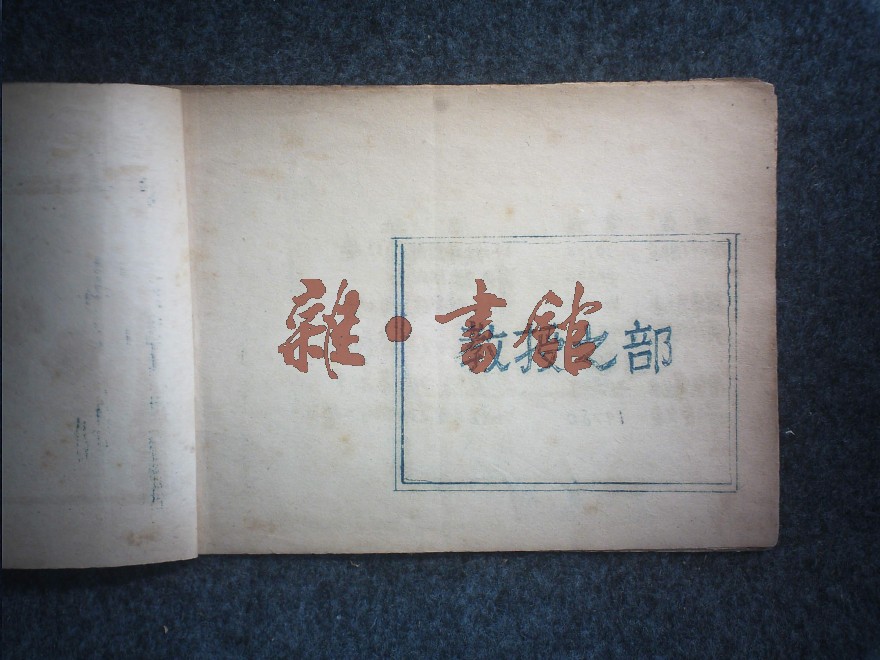 雜·書館
教授之部